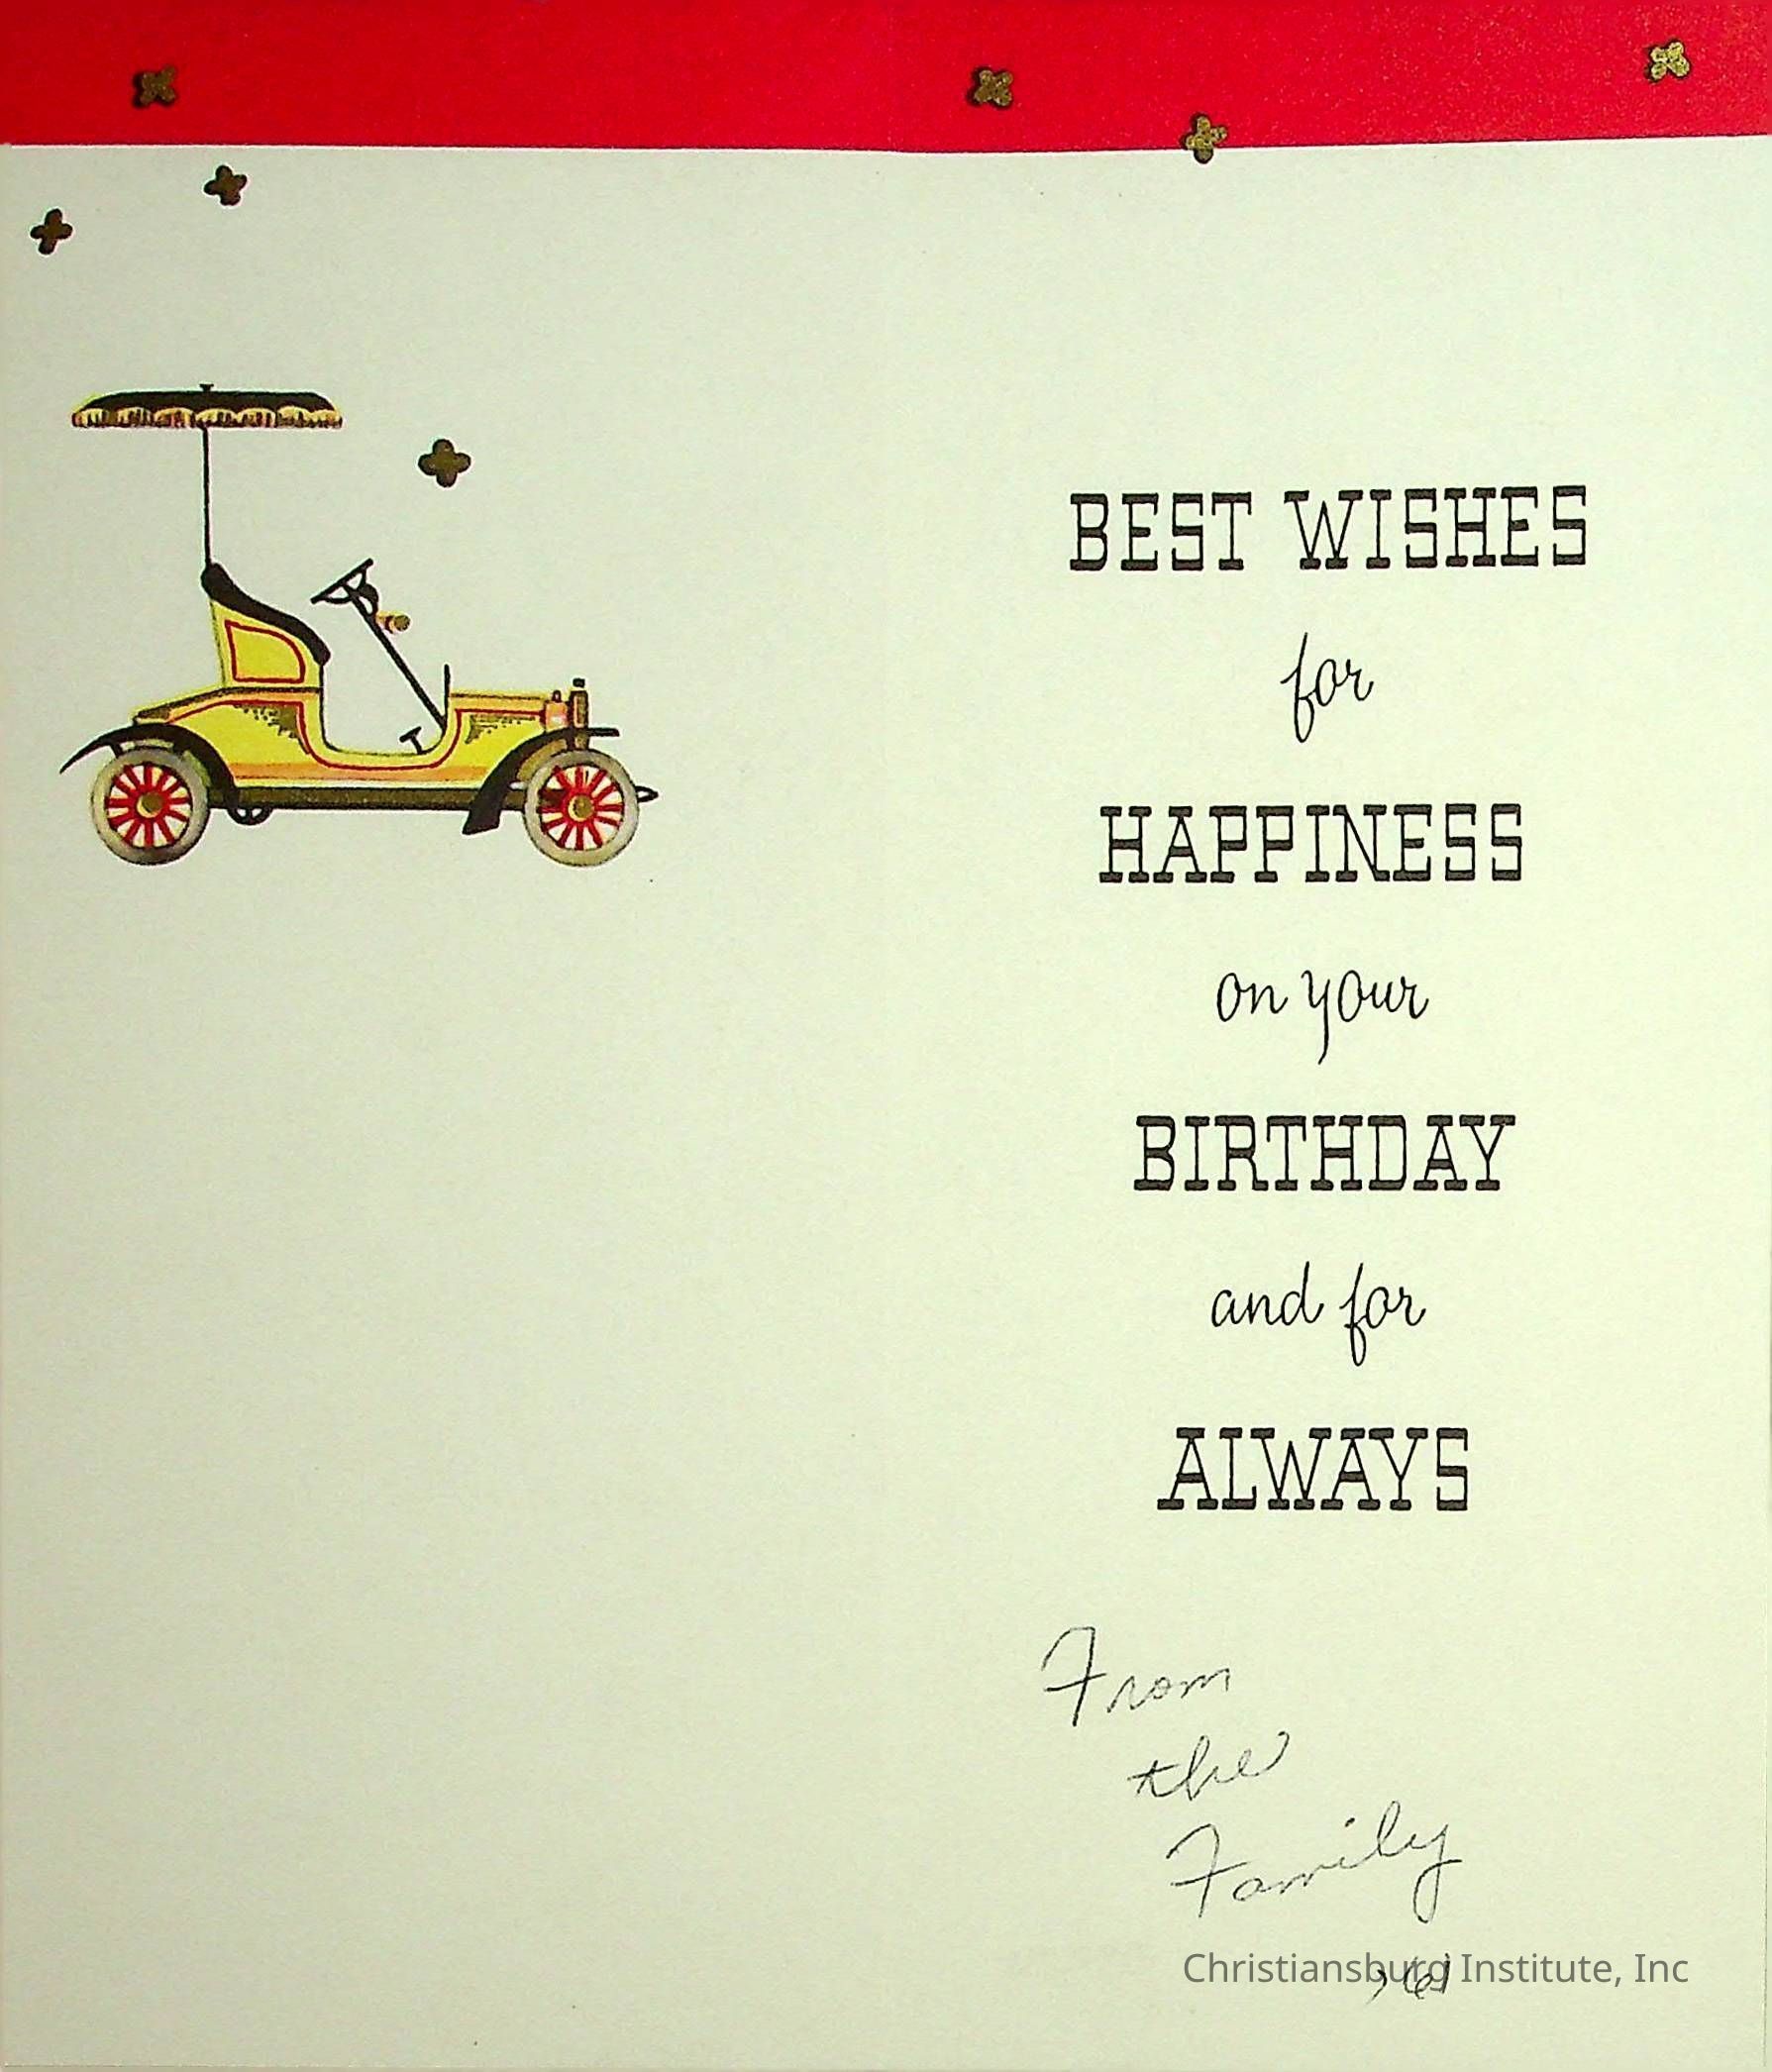 BEST WISHES
for
HAPPINESS
on your
BIRTHDAY
and for
ALWAYS
From
the
Family
Christiansburg Institute, Inc